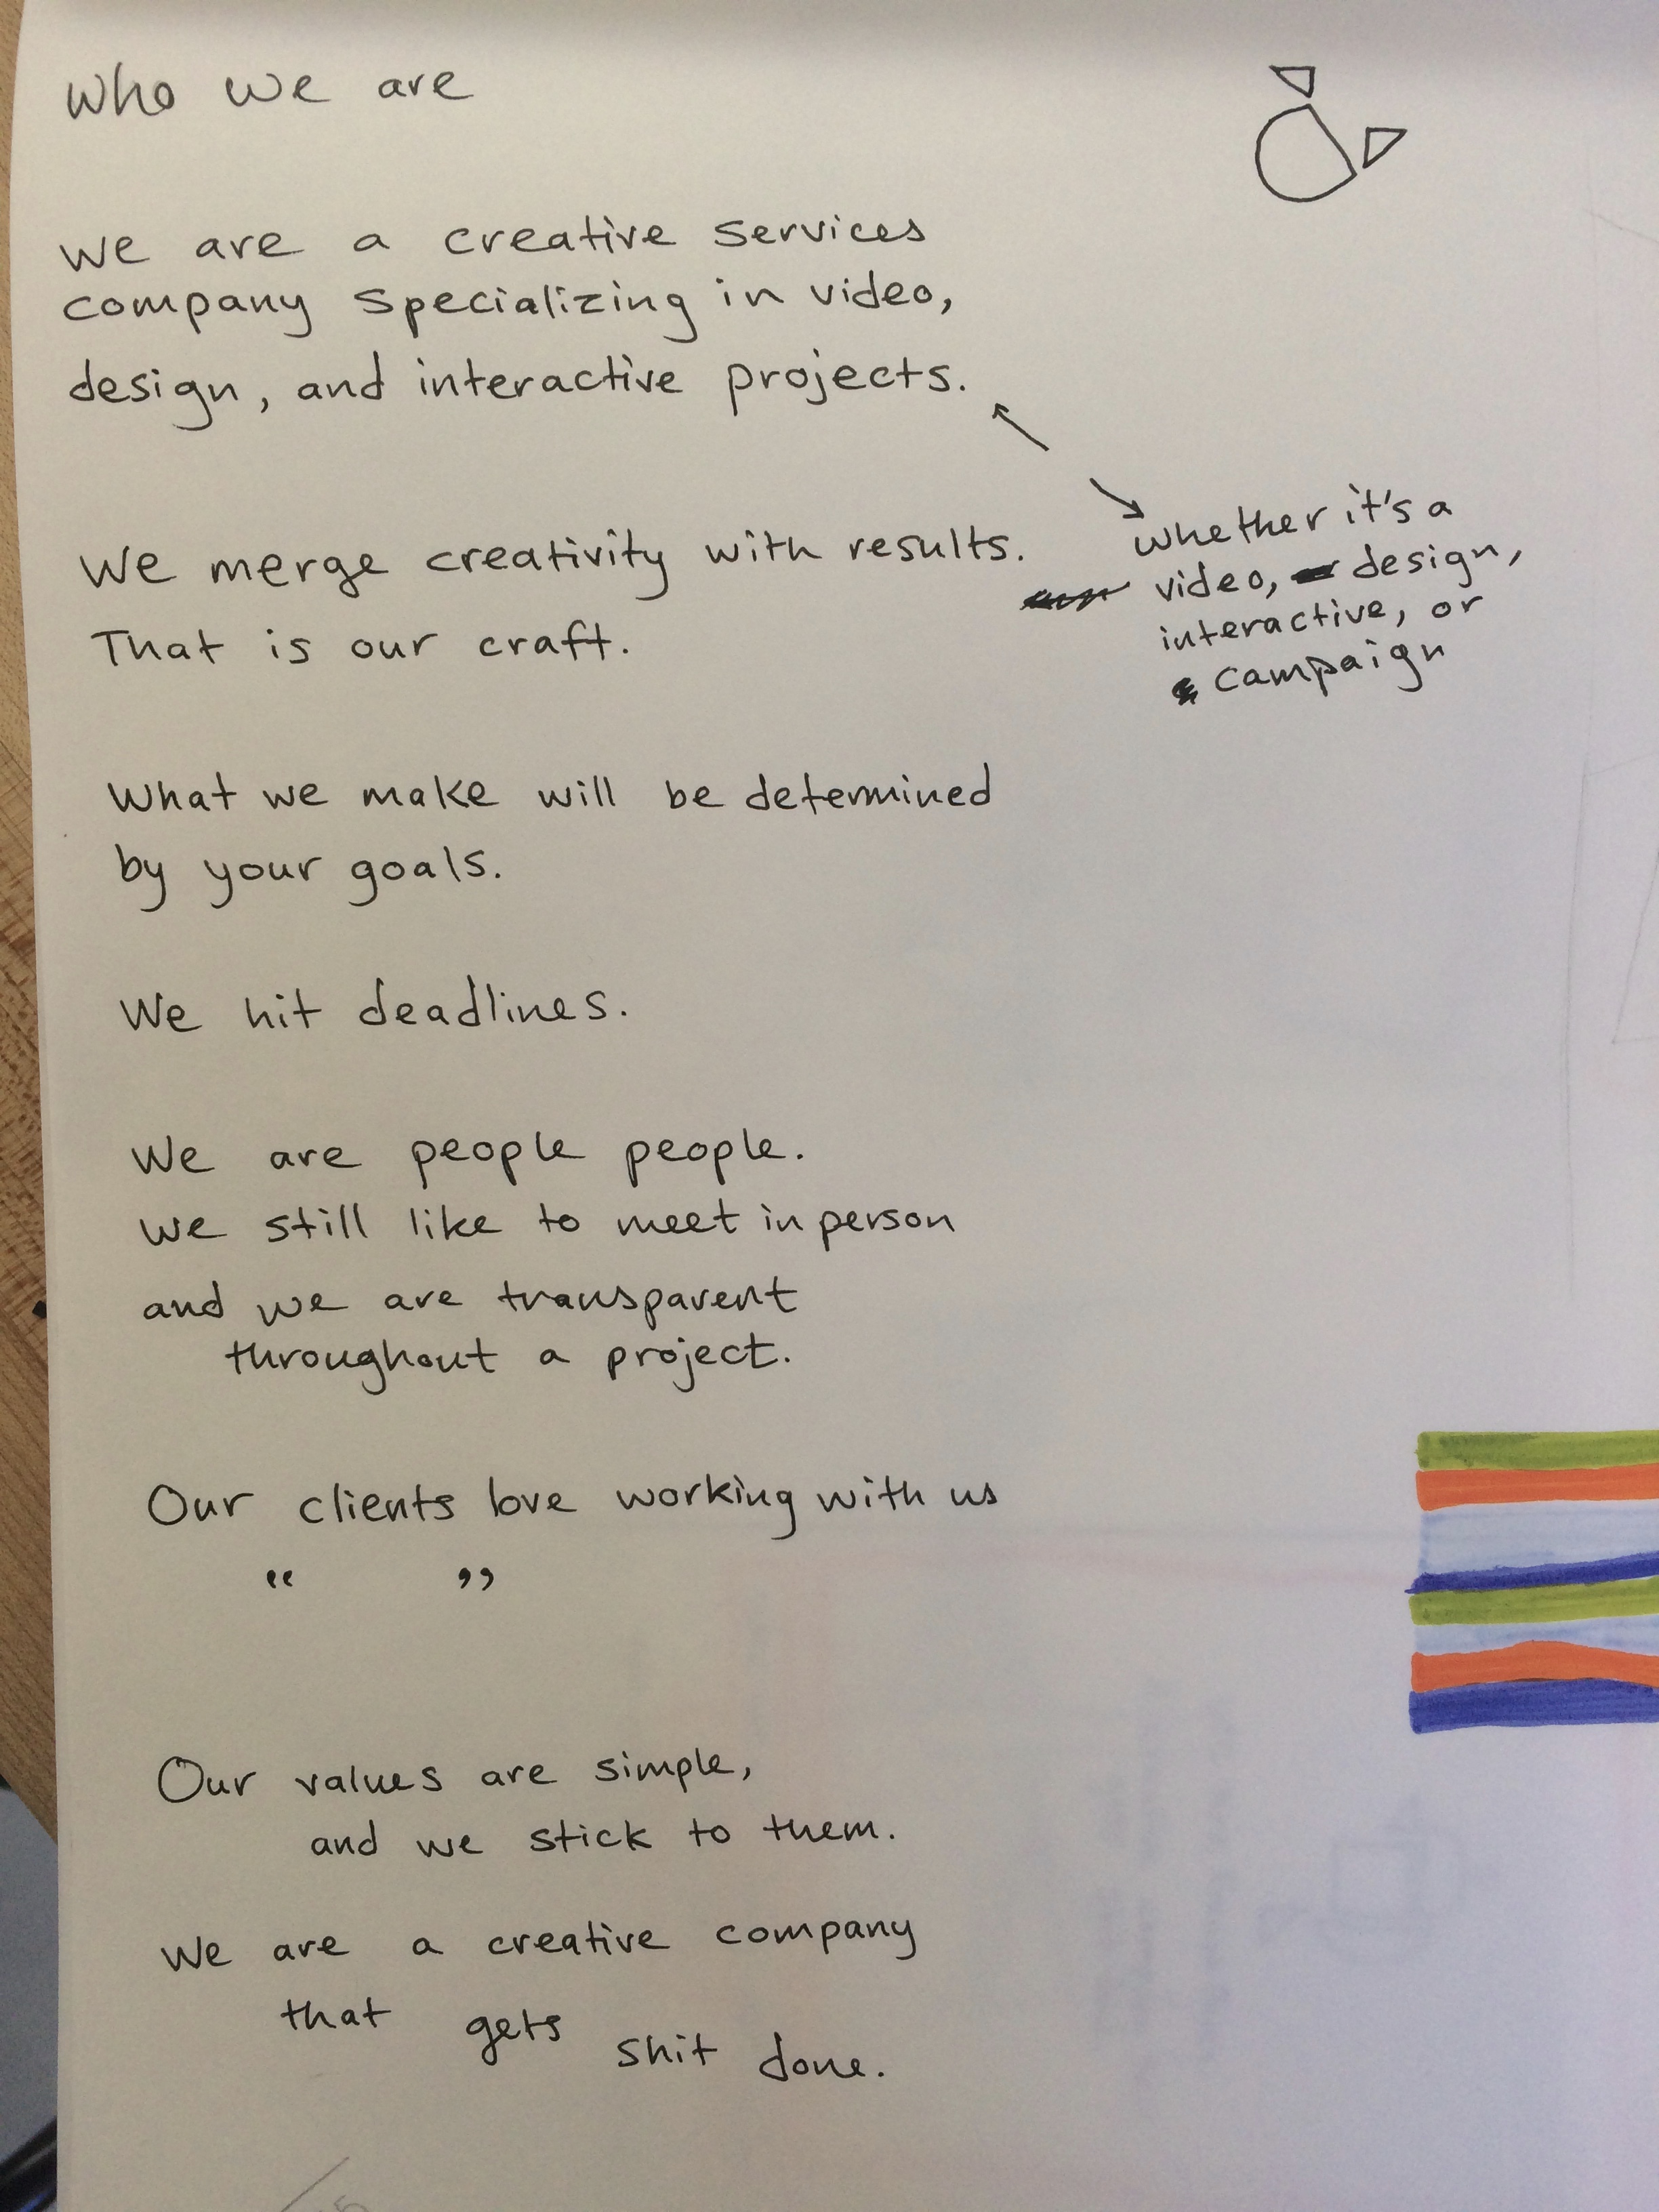 Who we are
We are a creative services
company specializing in video,
design, and interactive projects.
We merge creativity with results.
That is our craft.
whether it's a
video, design,
interactive, or
campaign
What we make will be determined
by your goals.
We hit deadlines.
We are people people.
we still like to meet in person
and we are transparent
throughout a project.
Our clients love working with us
“ ”
Our values are simple,
and we stick to them.
We are a creative company
that gets shit done.